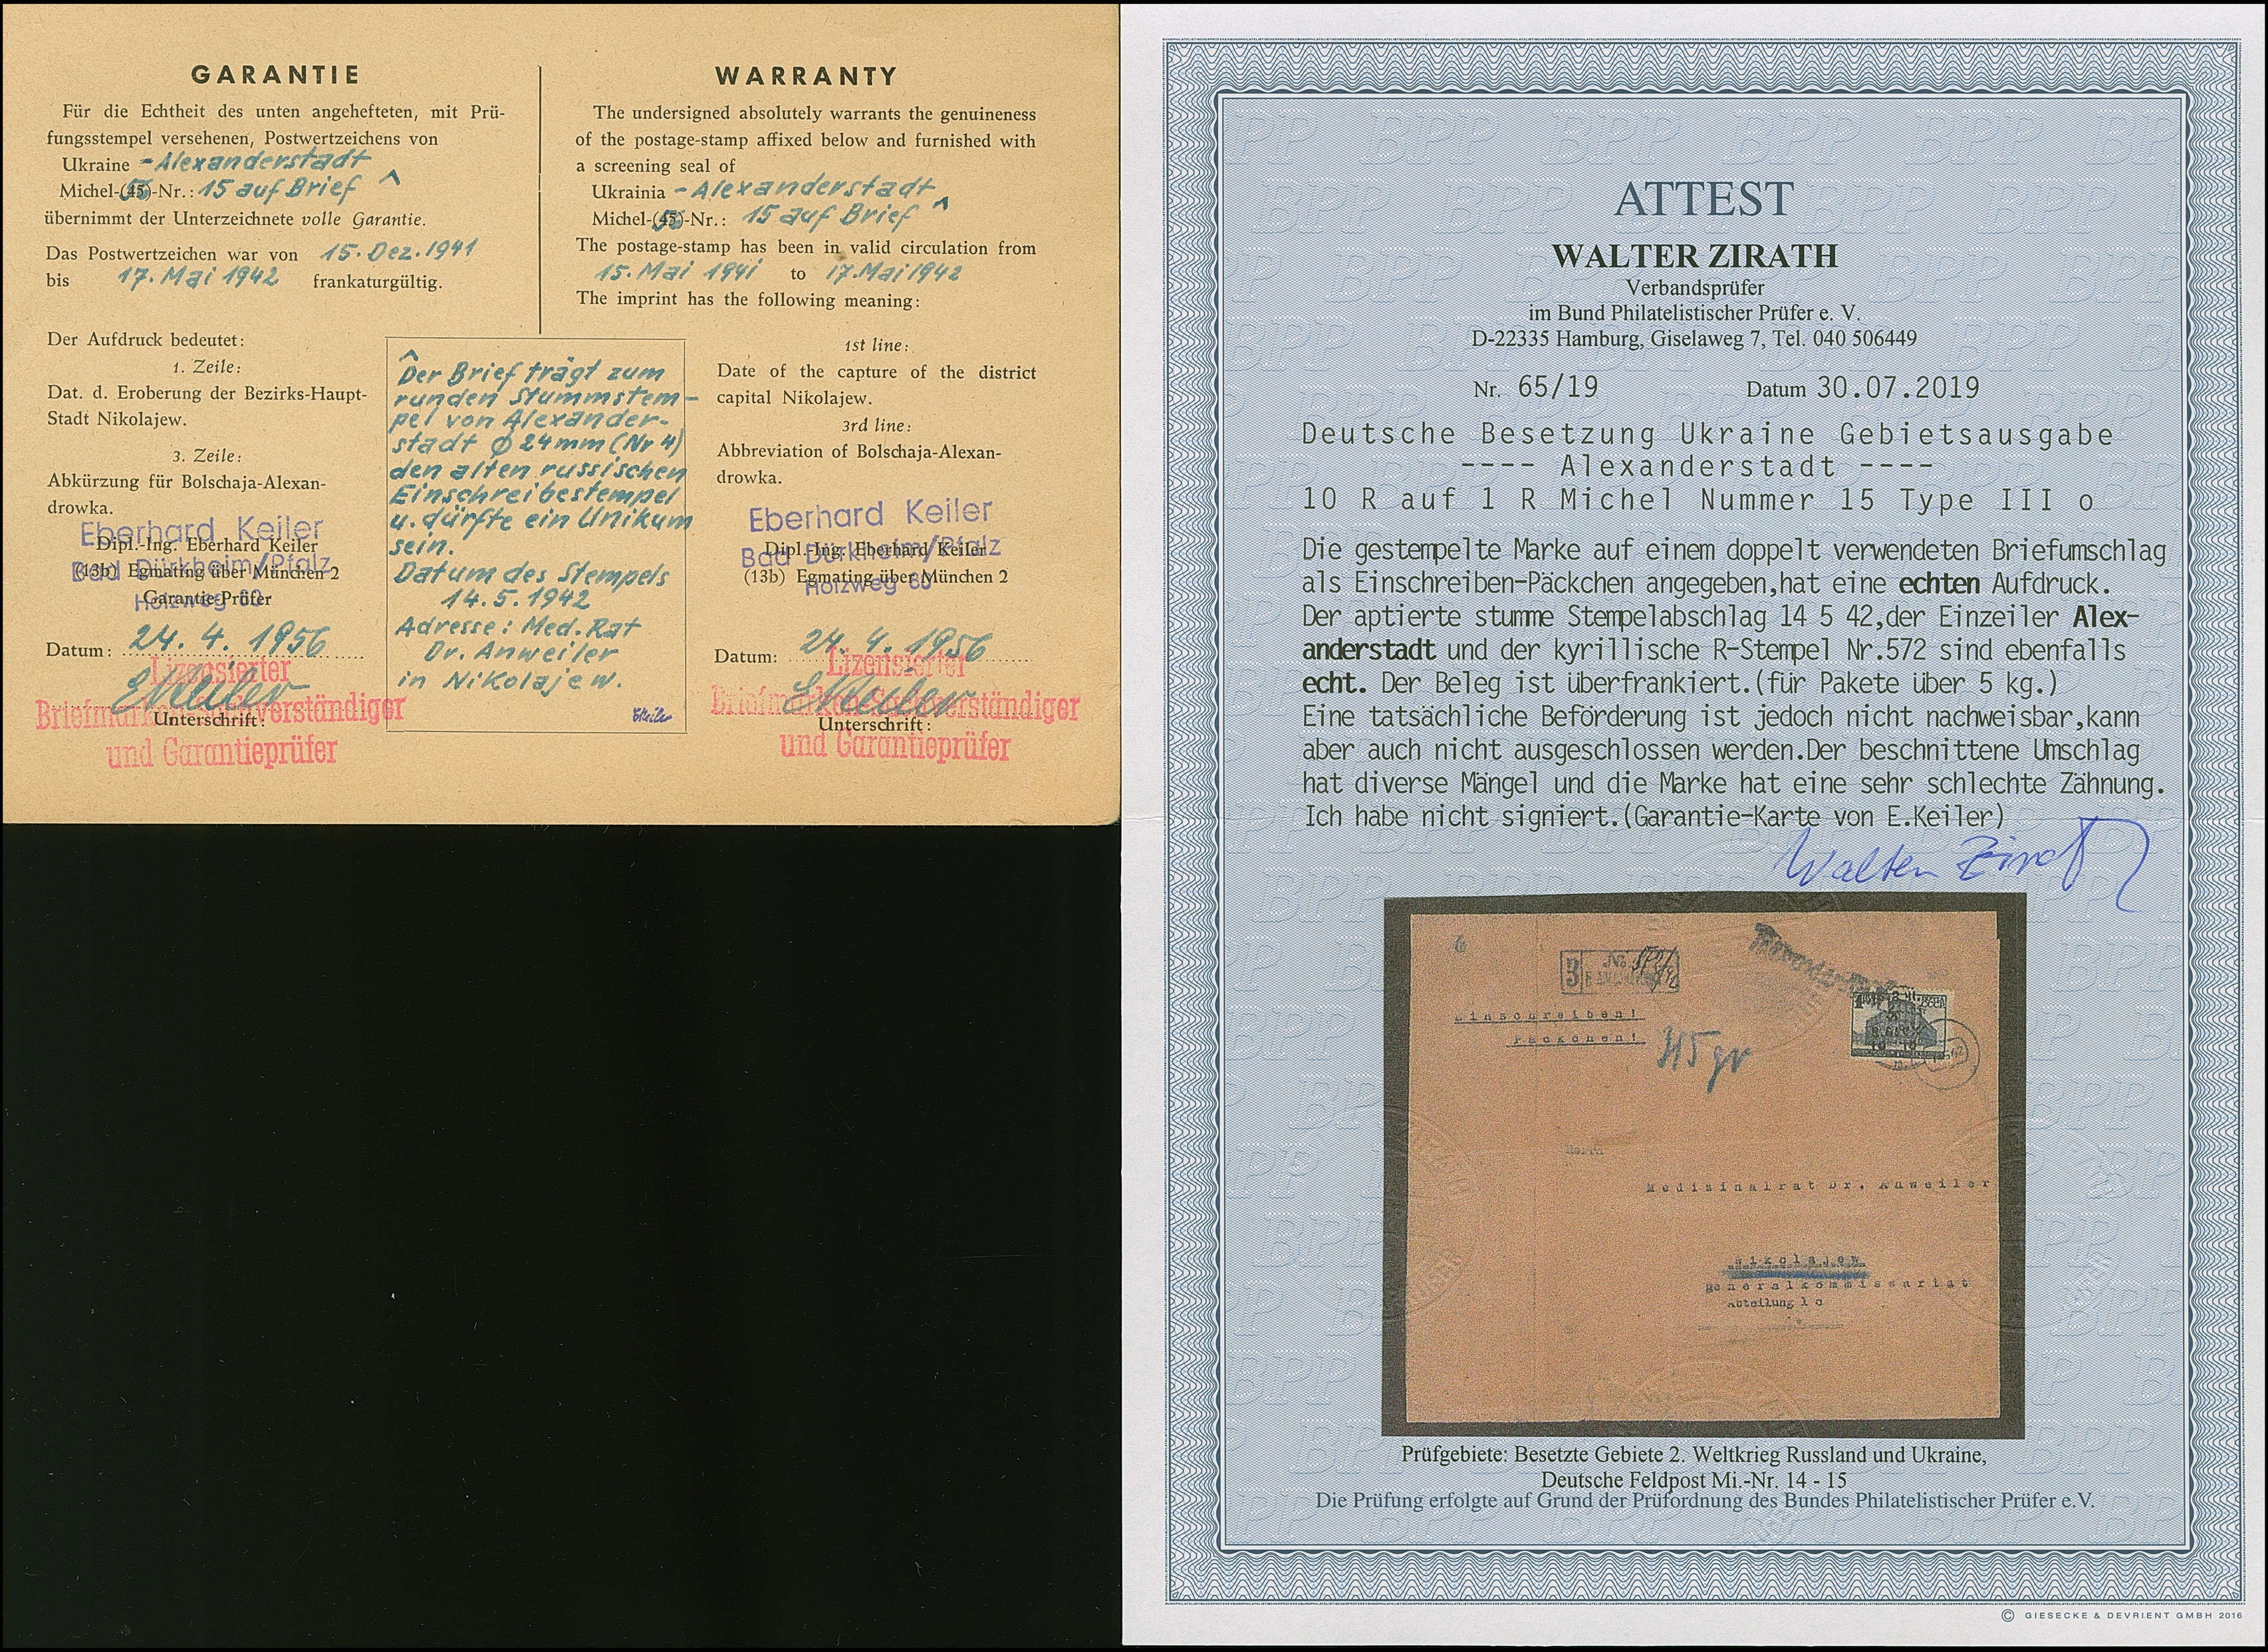 GARANTIE
Für die Echtheit des unten angehefteten, mit Prü-
fungsstempel versehenen, Postwertzeichens von
Ukraine - Alexanderstadt
Michel-(45)-Nr.: 15 auf Brief ^
übernimmt der Unterzeichnete volle Garantie.
Das Postwertzeichen war von 15. Dez. 1941
bis 17. Mai 1942 frankaturgültig.
Der Aufdruck bedeutet:
1. Zeile:
Dat. d. Eroberung der Bezirks-Haupt-
Stadt Nikolajew.
3. Zeile:
Abkürzung für Bolschaja-Alexan-
drowka.
Eberhard Keiler
Dipl.-Ing. Eberhard Keiler
Bad Dürkheim/Pfalz
(13b) Egmating über München 2
Holzweg 80
Garantie-Prüfer
Datum: 24. 4. 1956
Lizensierter
EKeiler
Briefmarkensachverständiger
Unterschrift:
und Garantieprüfer
^
Der Brief trägt zum
runden Stummstem-
pel von Alexander-
stadt Ø 24mm (Nr 4)
den alten russischen
Einschreibestempel
u. dürfte ein Unikum
sein.
Datum des Stempels
14.5.1942
Adresse: Med. Rat
Dr. Anweiler
in Nikolajew.
EKeiler
WARRANTY
The undersigned absolutely warrants the genuineness
of the postage-stamp affixed below and furnished with
a screening seal of
Ukrainia - Alexanderstadt
Michel-(45)-Nr.: 15 auf Brief ^
The postage-stamp has been in valid circulation from
15. Mai 1941 to 17. Mai 1942
The imprint has the following meaning:
1st line:
Date of the capture of the district
capital Nikolajew.
3rd line:
Abbreviation of Bolschaja-Alexan-
drowka.
Eberhard Keiler
Dipl.-Ing. Eberhard Keiler
Bad Dürkheim/Pfalz
(13b) Egmating über München 2
Holzweg 80
Datum: 24. 4. 1956
Lizensierter
EKeiler
Briefmarkensachverständiger
Unterschrift:
und Garantieprüfer
ATTEST
WALTER ZIRATH
Verbandsprüfer
im Bund Philatelistischer Prüfer e. V.
D-22335 Hamburg, Giselaweg 7, Tel. 040 506449
Nr. 65/19 Datum 30.07.2019
Deutsche Besetzung Ukraine Gebietsausgabe
---- Alexanderstadt ----
10 R auf 1 R Michel Nummer 15 Type III o
Die gestempelte Marke auf einem doppelt verwendeten Briefumschlag
als Einschreiben-Päckchen angegeben,hat eine echten Aufdruck.
Der aptierte stumme Stempelabschlag 14 5 42,der Einzeiler Alex-
anderstadt und der kyrillische R-Stempel Nr.572 sind ebenfalls
echt. Der Beleg ist überfrankiert.(für Pakete über 5 kg.)
Eine tatsächliche Beförderung ist jedoch nicht nachweisbar,kann
aber auch nicht ausgeschlossen werden.Der beschnittene Umschlag
hat diverse Mängel und die Marke hat eine sehr schlechte Zähnung.
Ich habe nicht signiert.(Garantie-Karte von E.Keiler)
Walter Zirath
Einschreiben!
Päckchen!
315 gr
Herrn
Medizinalrat Dr. Anweiler
Nikolajew
Generalkommissariat
Abteilung 1 c
Prüfgebiete: Besetzte Gebiete 2. Weltkrieg Russland und Ukraine,
Deutsche Feldpost Mi.-Nr. 14 - 15
Die Prüfung erfolgte auf Grund der Prüfordnung des Bundes Philatelistischer Prüfer e.V.
© GIESECKE & DEVRIENT GMBH 2016